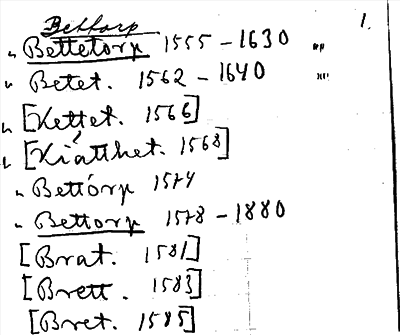 Bettorp 1.
" Bettetorp 1555 - 1630 "
" Betet. 1562 - 1640 "
" [Kettet. 1566]
" [Kiätthet. 1568]
" Bettórp 1574
" Bettorp 1578 - 1880
[Brat. 1581]
[Brett. 1583]
[Bret. 1585]